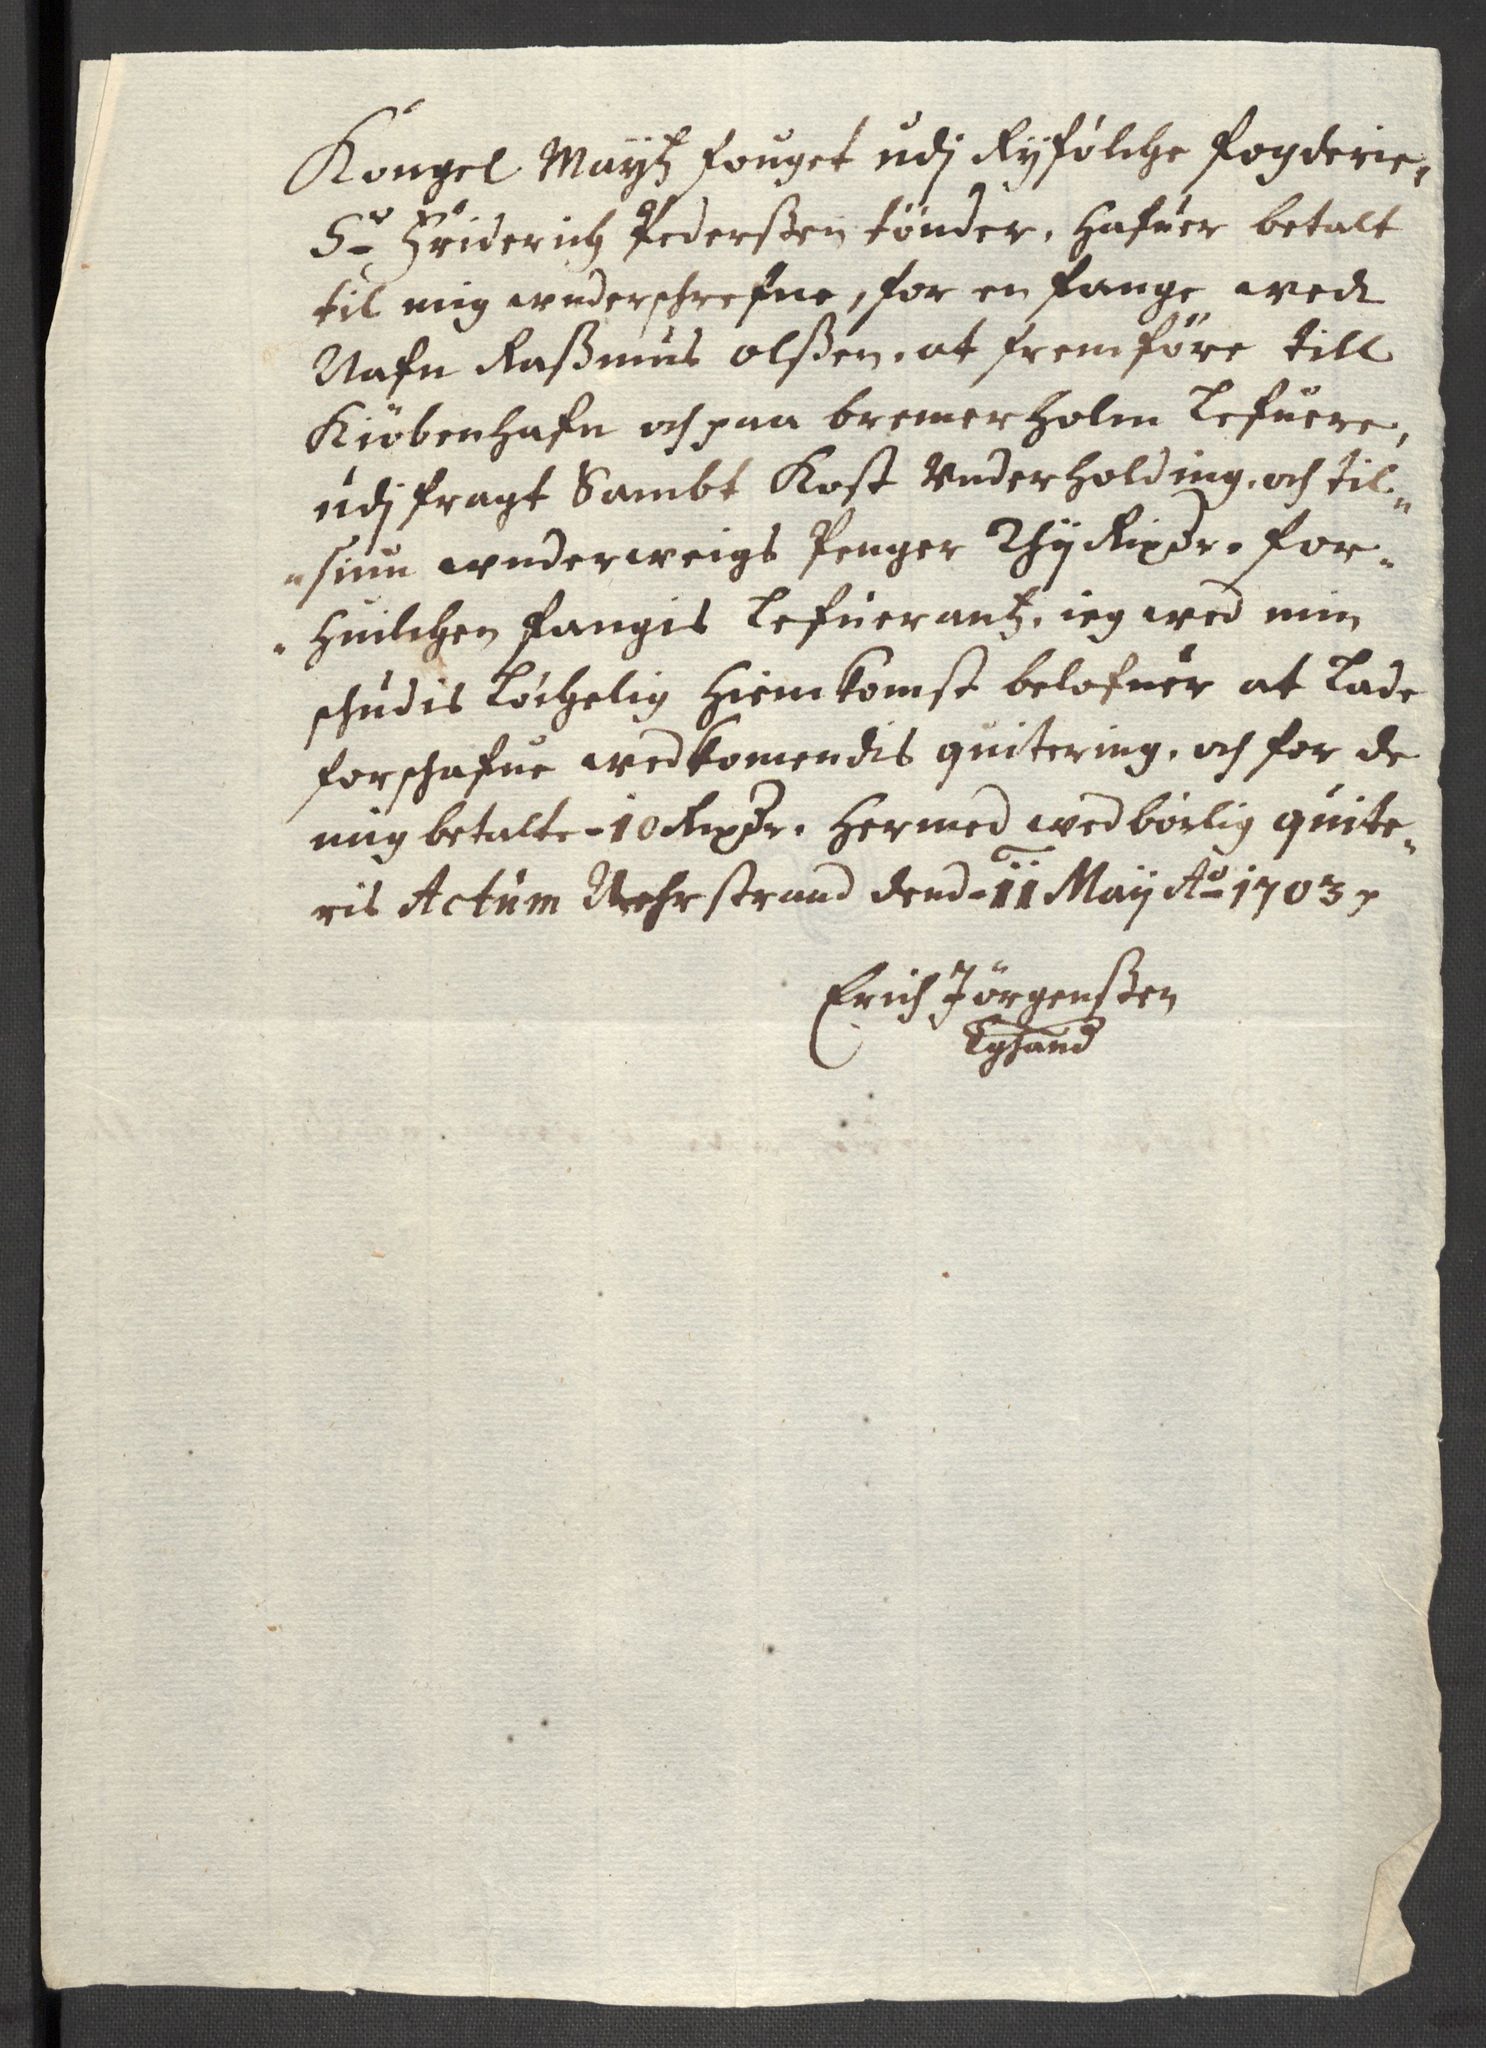 Kongel Mayts fouget udj Ryfölche fogderie,
Sr Friderich Pederßen tönder, hafuer betalt
til mig wnderschrefne, for en fange wed
Nafn Raßmus olßen, at fremföre till
Kiöbenhafn och paa bremerholm Lefuere,
udj fragt Sambt Kost Vnderholding, och til„
„siun wnderweigs Penger Thÿ Rixdr. for„
„huilchen fangis Lefuerantz, ieg wed min
schudis Löchelig hiemkomst belofuer at Lade
forschafue wedkomendis quitering, och for de
mig betalte - 10 Rixdr. hermed wedbörlig quite„
ris Actum Nehrstrand dend - 11 Maÿ Ao 1703 p
Erich Jörgenßen